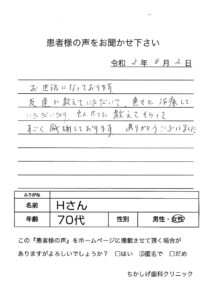 患者様の声をお聞かせ下さい
令和 3年 8月 2日
お世話になっております
友達に教えていただいて、色々と治療して
いただいたり セルフケア 教えてもらって
すごく感謝しております ありがとうございました
ふりがな
名前 Hさん
年齢 70代 性別 男性・女性
この『患者様の声』をホームページに掲載させて頂く場合が
ありますがよろしいでしょうか? □はい ☑匿名で □だめ
ちかしげ歯科クリニック